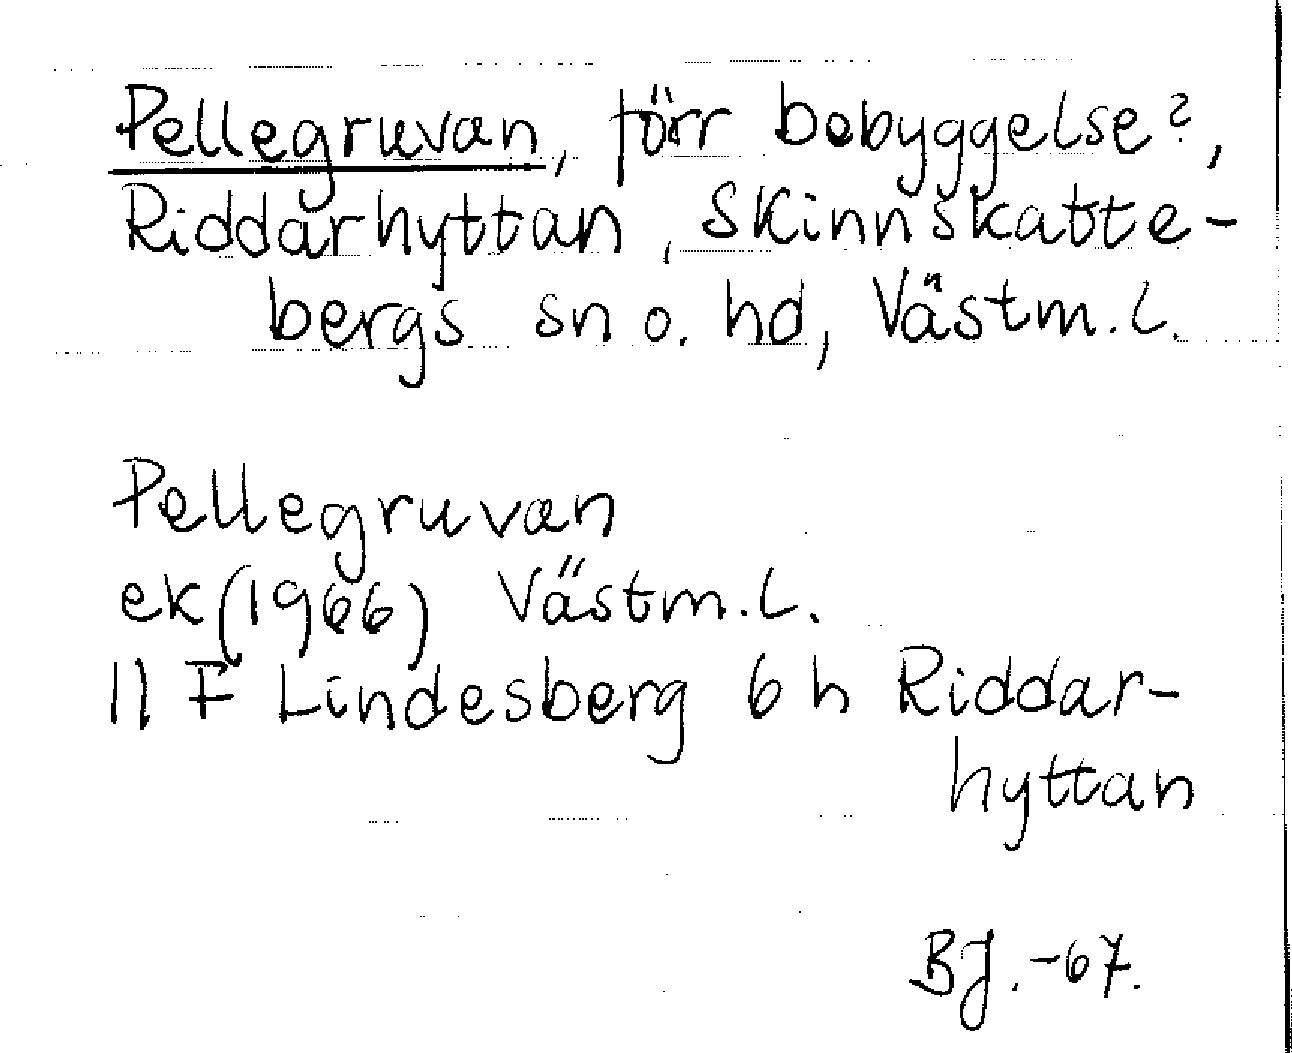 Pellegruvan, förr bebyggelse?,
Riddarhyttan, Skinnskatte-
bergs sn o. hd, Västm.l.
Pellegruvan
ek (1966) Västm.l.
11 F Lindesberg 6 h Riddar-
hyttan
BJ.-67.